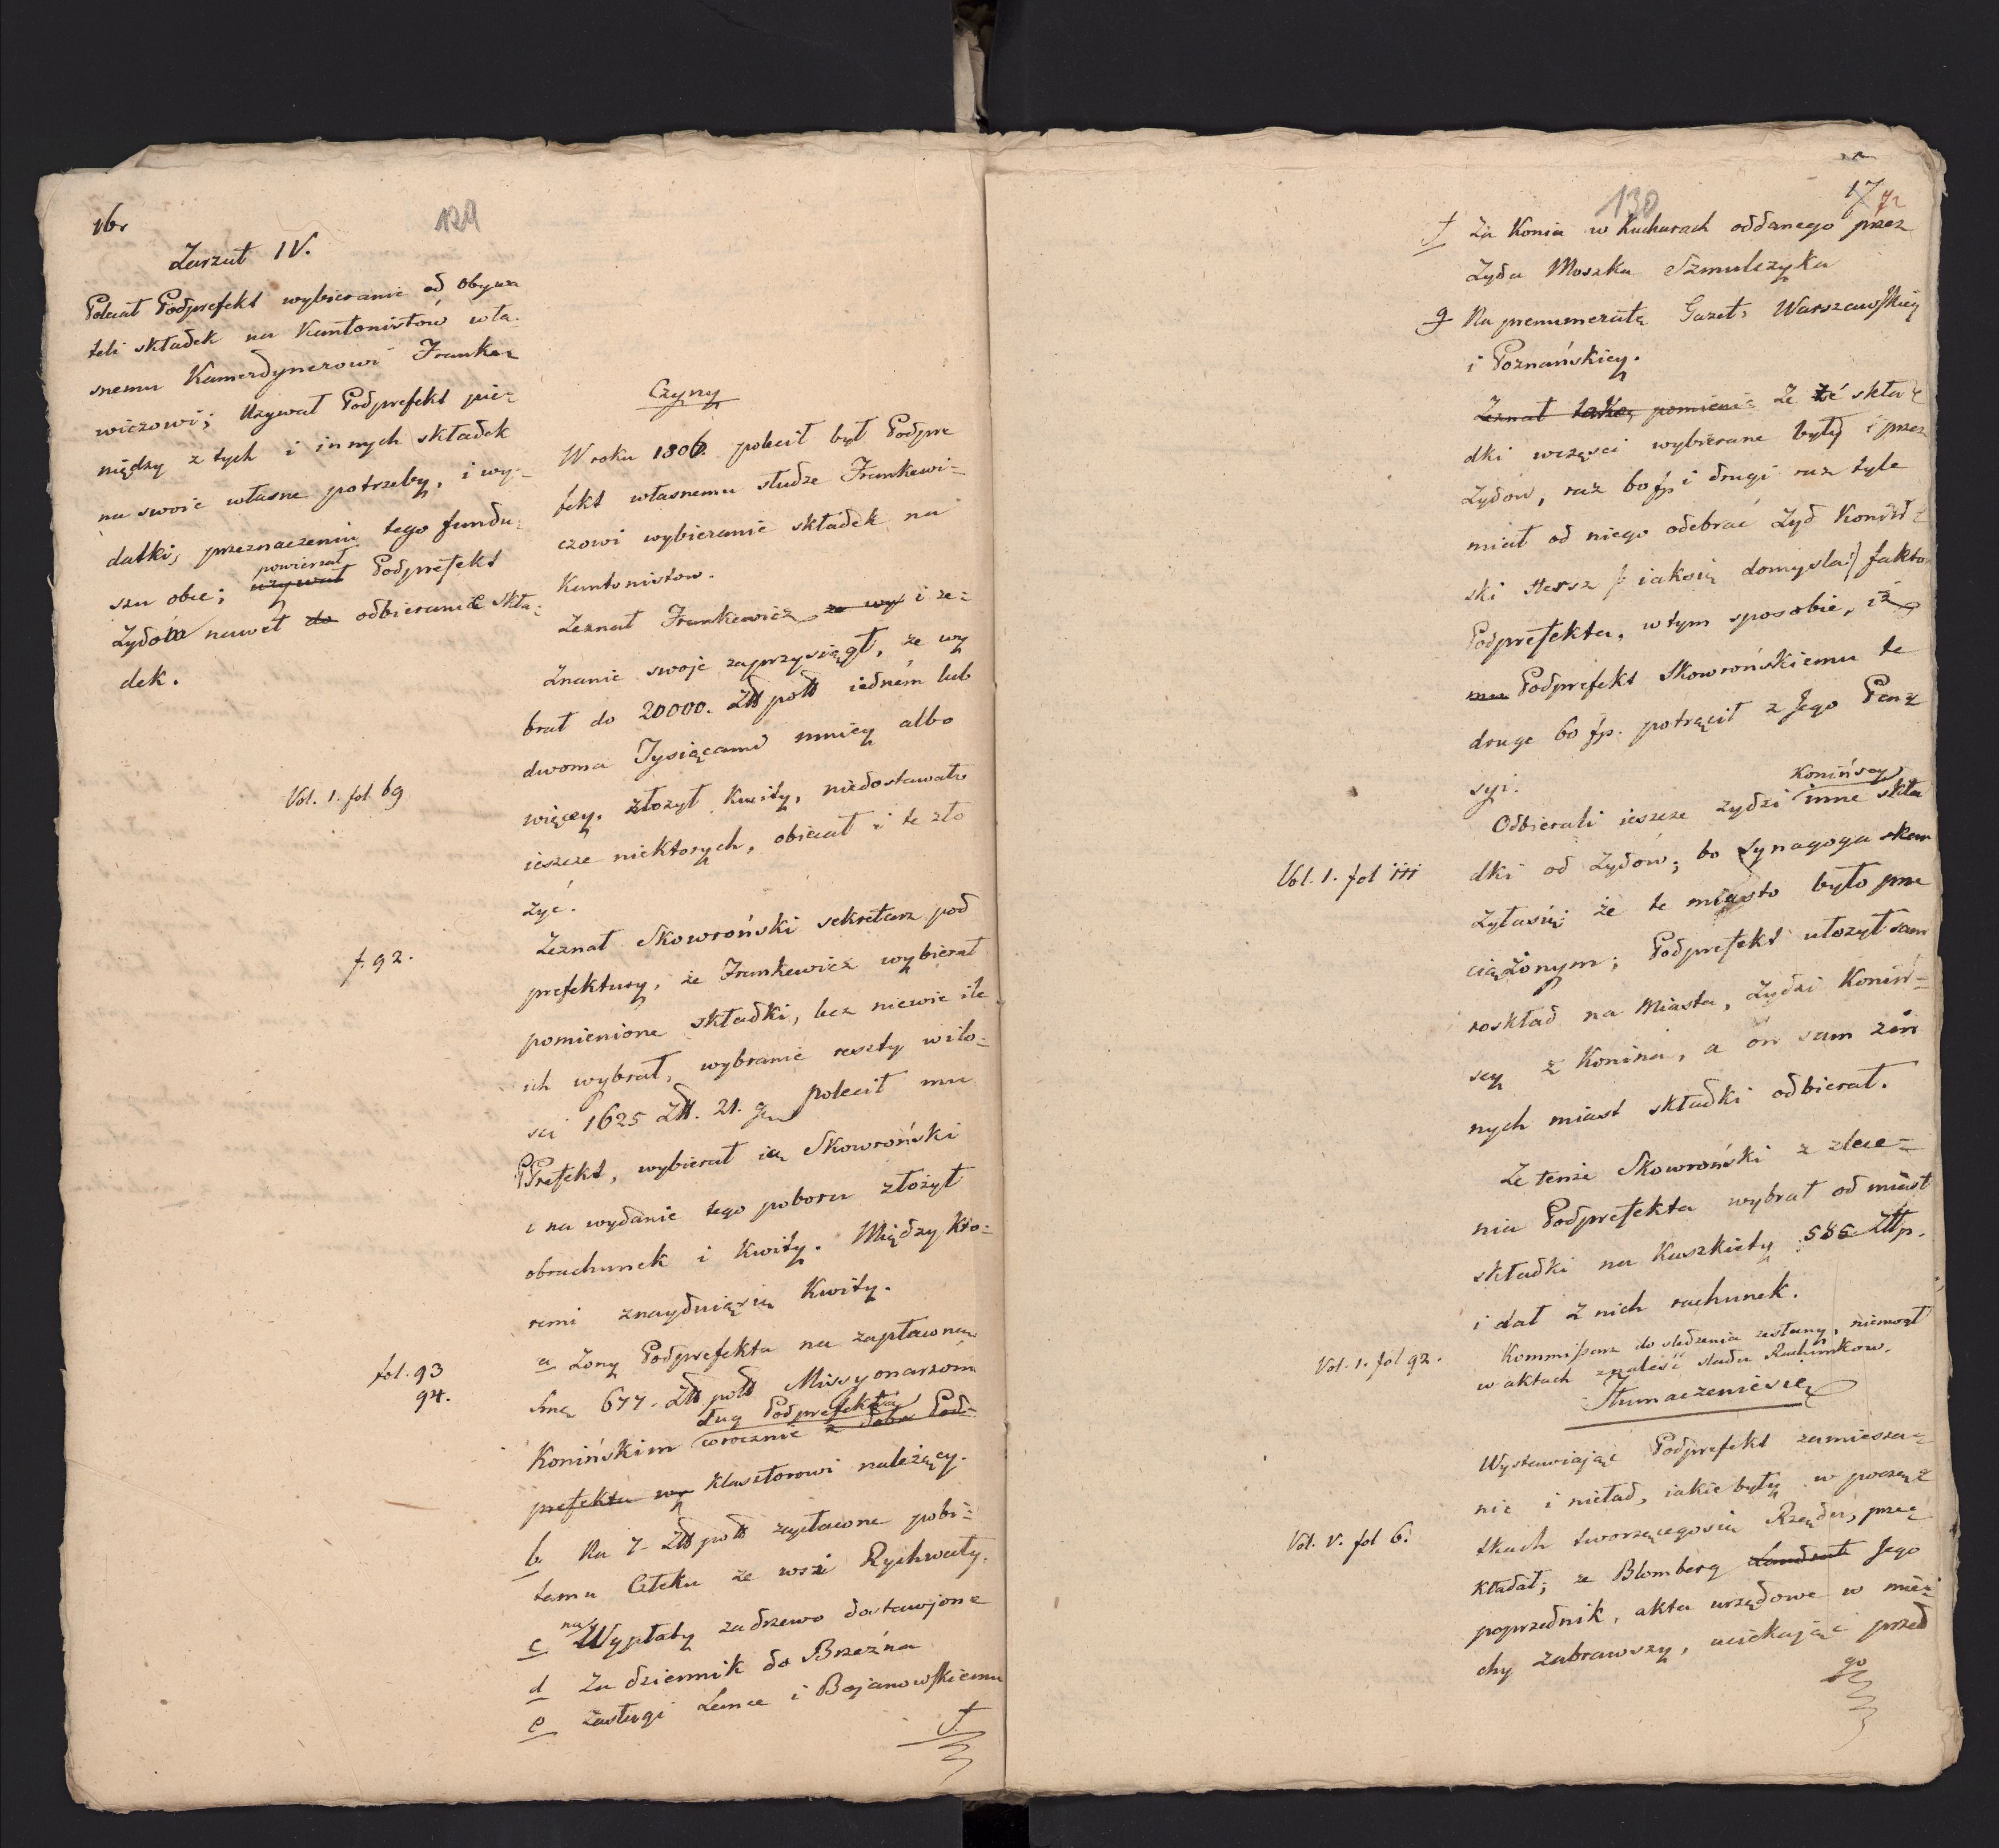 16.
129
Zarzut IV.
Polecał Podprefekt wybieranie od obywa
teli składek na Kantonistów wła-
snemu Kamerdynerowi Franke-
wiczowi; Używał Podprefekt pie-
niędzy z tych i innych składek
na swoie własne potrzeby, i wy-
datki, przeznaczeniu tego fundu-
powierzał
szu obce; używał Podprefekt
Żydom nawet do odbieranie skła-
dek.
Czyny
W roku 1806. polecił był Podpre
fekt własnemu słudze Frankewi=
czowi wybieranie składek na
Kantonistow.
Vol. 1. fol 69
Zeznał Frankewicz ze wy i ze=
znanie swoje zaprzysiągł, że wy
brał do 20000. Złł polł iednem lub
dwoma Tysiącami mniey albo
więcey. złożył Kwity, niedostawało
ieszcze niektorych, obiecał i te zło
żyć.
f. 92.
Zeznał Skowroński sekretarz pod
prefektury, że Frankewicz wybierał
pomienione składki, lecz niewie ile
ich wybrał, wybranie reszty wilo=
sci 1625 Złł. 21. gr polecił mu
PPrefekt, wybierał ią Skowroński
i na wydanie tego poboru złożył
obrachunek i Kwity. Między kto=
remi znayduiąsię Kwity.
fol. 93
94.
a Żony Podprefekta na zapłacone
Sme 677. Złł polł Missyonarzom
dług Podprefekta
Konińskim corocznie z dobr Pod=
prefekta wy klasztorowi należący.
b. Na 7- Złł polł zapłacone pobi=
temu Człeku ze wsi Rychwały.
na
c Wypłaty za drzewo dostawione
d Za dziennik do Brzeźna
e zasługi Lance i Bojanowskiemu
f.
130
17
f Za Konia w Kucharach oddanego przez
Żyda Moszka Szmulczyka
g Na prenumeratę Gazet: Warszawskiey
i Poznańskiey.
Zeznał także, pomienić Ze że skła
dki wczęsci wybierane były i przez
Żydow, raz 60 fp i drugi raz tyle
miał od niego odebrać Żyd Konin
ski Hersz /: iaksię domysla:/ fakto
Podprefekta, wtym sposobie, iż
mu Podprefekt Skowrońskiemu te
druge 60 fp. potrącił z Jego Pen
syi.
Konińscy
Odbierali ieszcze żydzi inne skła
Vol. 1. fol 111
dki od Żydów; bo Synagoga skar
żyłasię że te miasto było prze
ciążonym; Podprefekt ułożył sam
roskład na Miasta, Żydzi Koniń=
scy z Konina, a on sam zin
nych miast składki odbierał.
Ze tenże Skowroński z zlece=
nia Podprefekta wybrał od miast
składki na Kaszkiety 585 Złłp.
i dał z nich rachunek.
Vol. 1. fol 92.
Kommissarz do sledzenia zesłany, niemogł
w aktach znaleść sladu Rachunkow.
Tłumaczeniesię
Wystawiaiąc Podprefekt zamiesza=
nie i nieład, iakie były w począ
Vol. V. fol 6.
tkach tworzącegosię Rządu, prze
kładał; że Blomberg Landrat Jego
poprzednik, akta urzędowe w mie
chy zabrawszy, uciekając przed
go